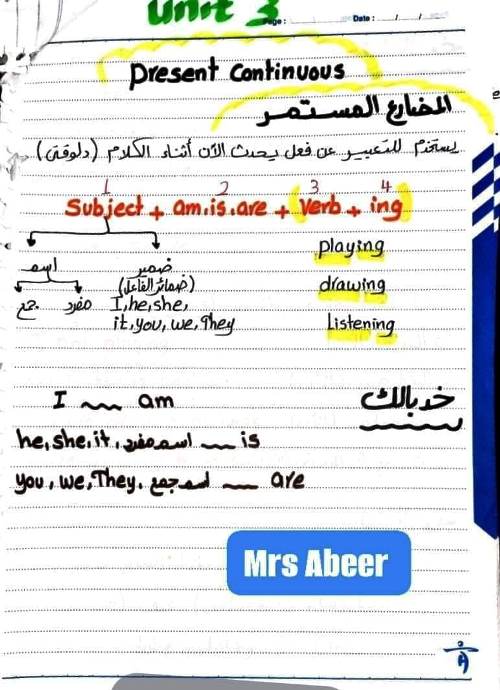 Unit 3
Page: Date: / /
Present Continuous
المضارع المستمر
يستخدم للتعبير عن فعل يحدث الآن أثناء الكلام (دلوقتى)
1 2 3 4
Subject + am.is.are + (verb + ing)
playing
اسم ضمير
(ضمائر الفاعل) drawing
جمع مفرد I, he, she,
it, you, we, They Listening
I am خد بالك
he, she, it, اسم مفرد is
you, we, They, اسم جمع are
Mrs Abeer